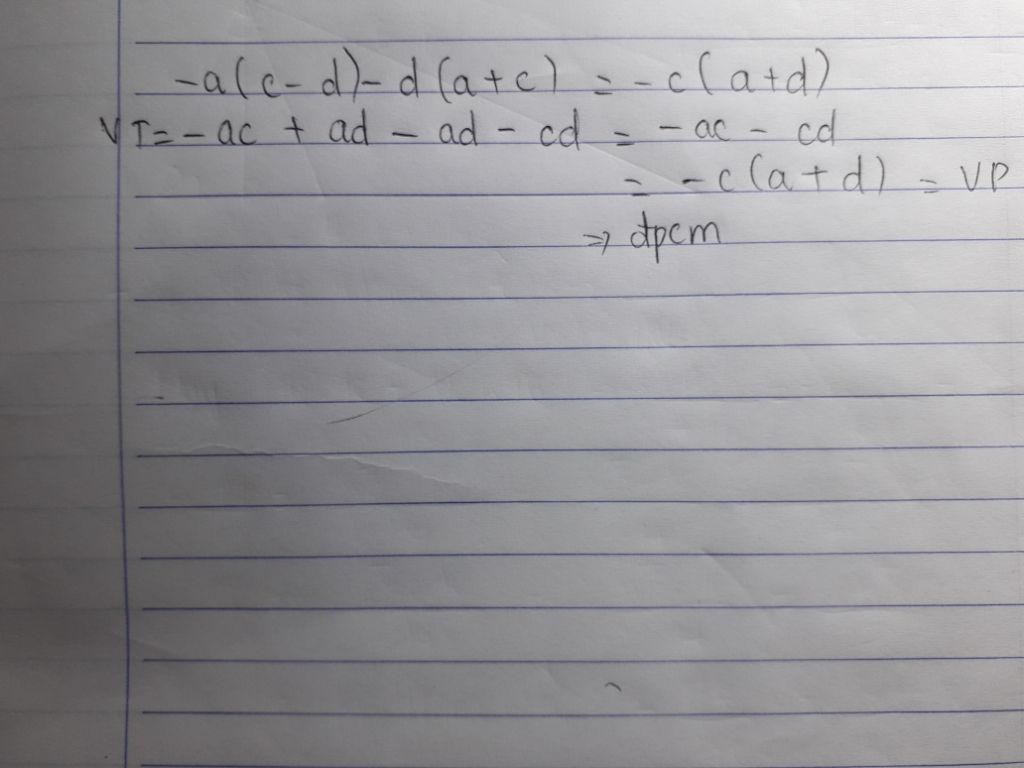 -a(c-d)-d(a+c) = -c(a+d)
VT= -ac + ad - ad - cd = -ac - cd
= -c(a+d) = VP
=> đpcm